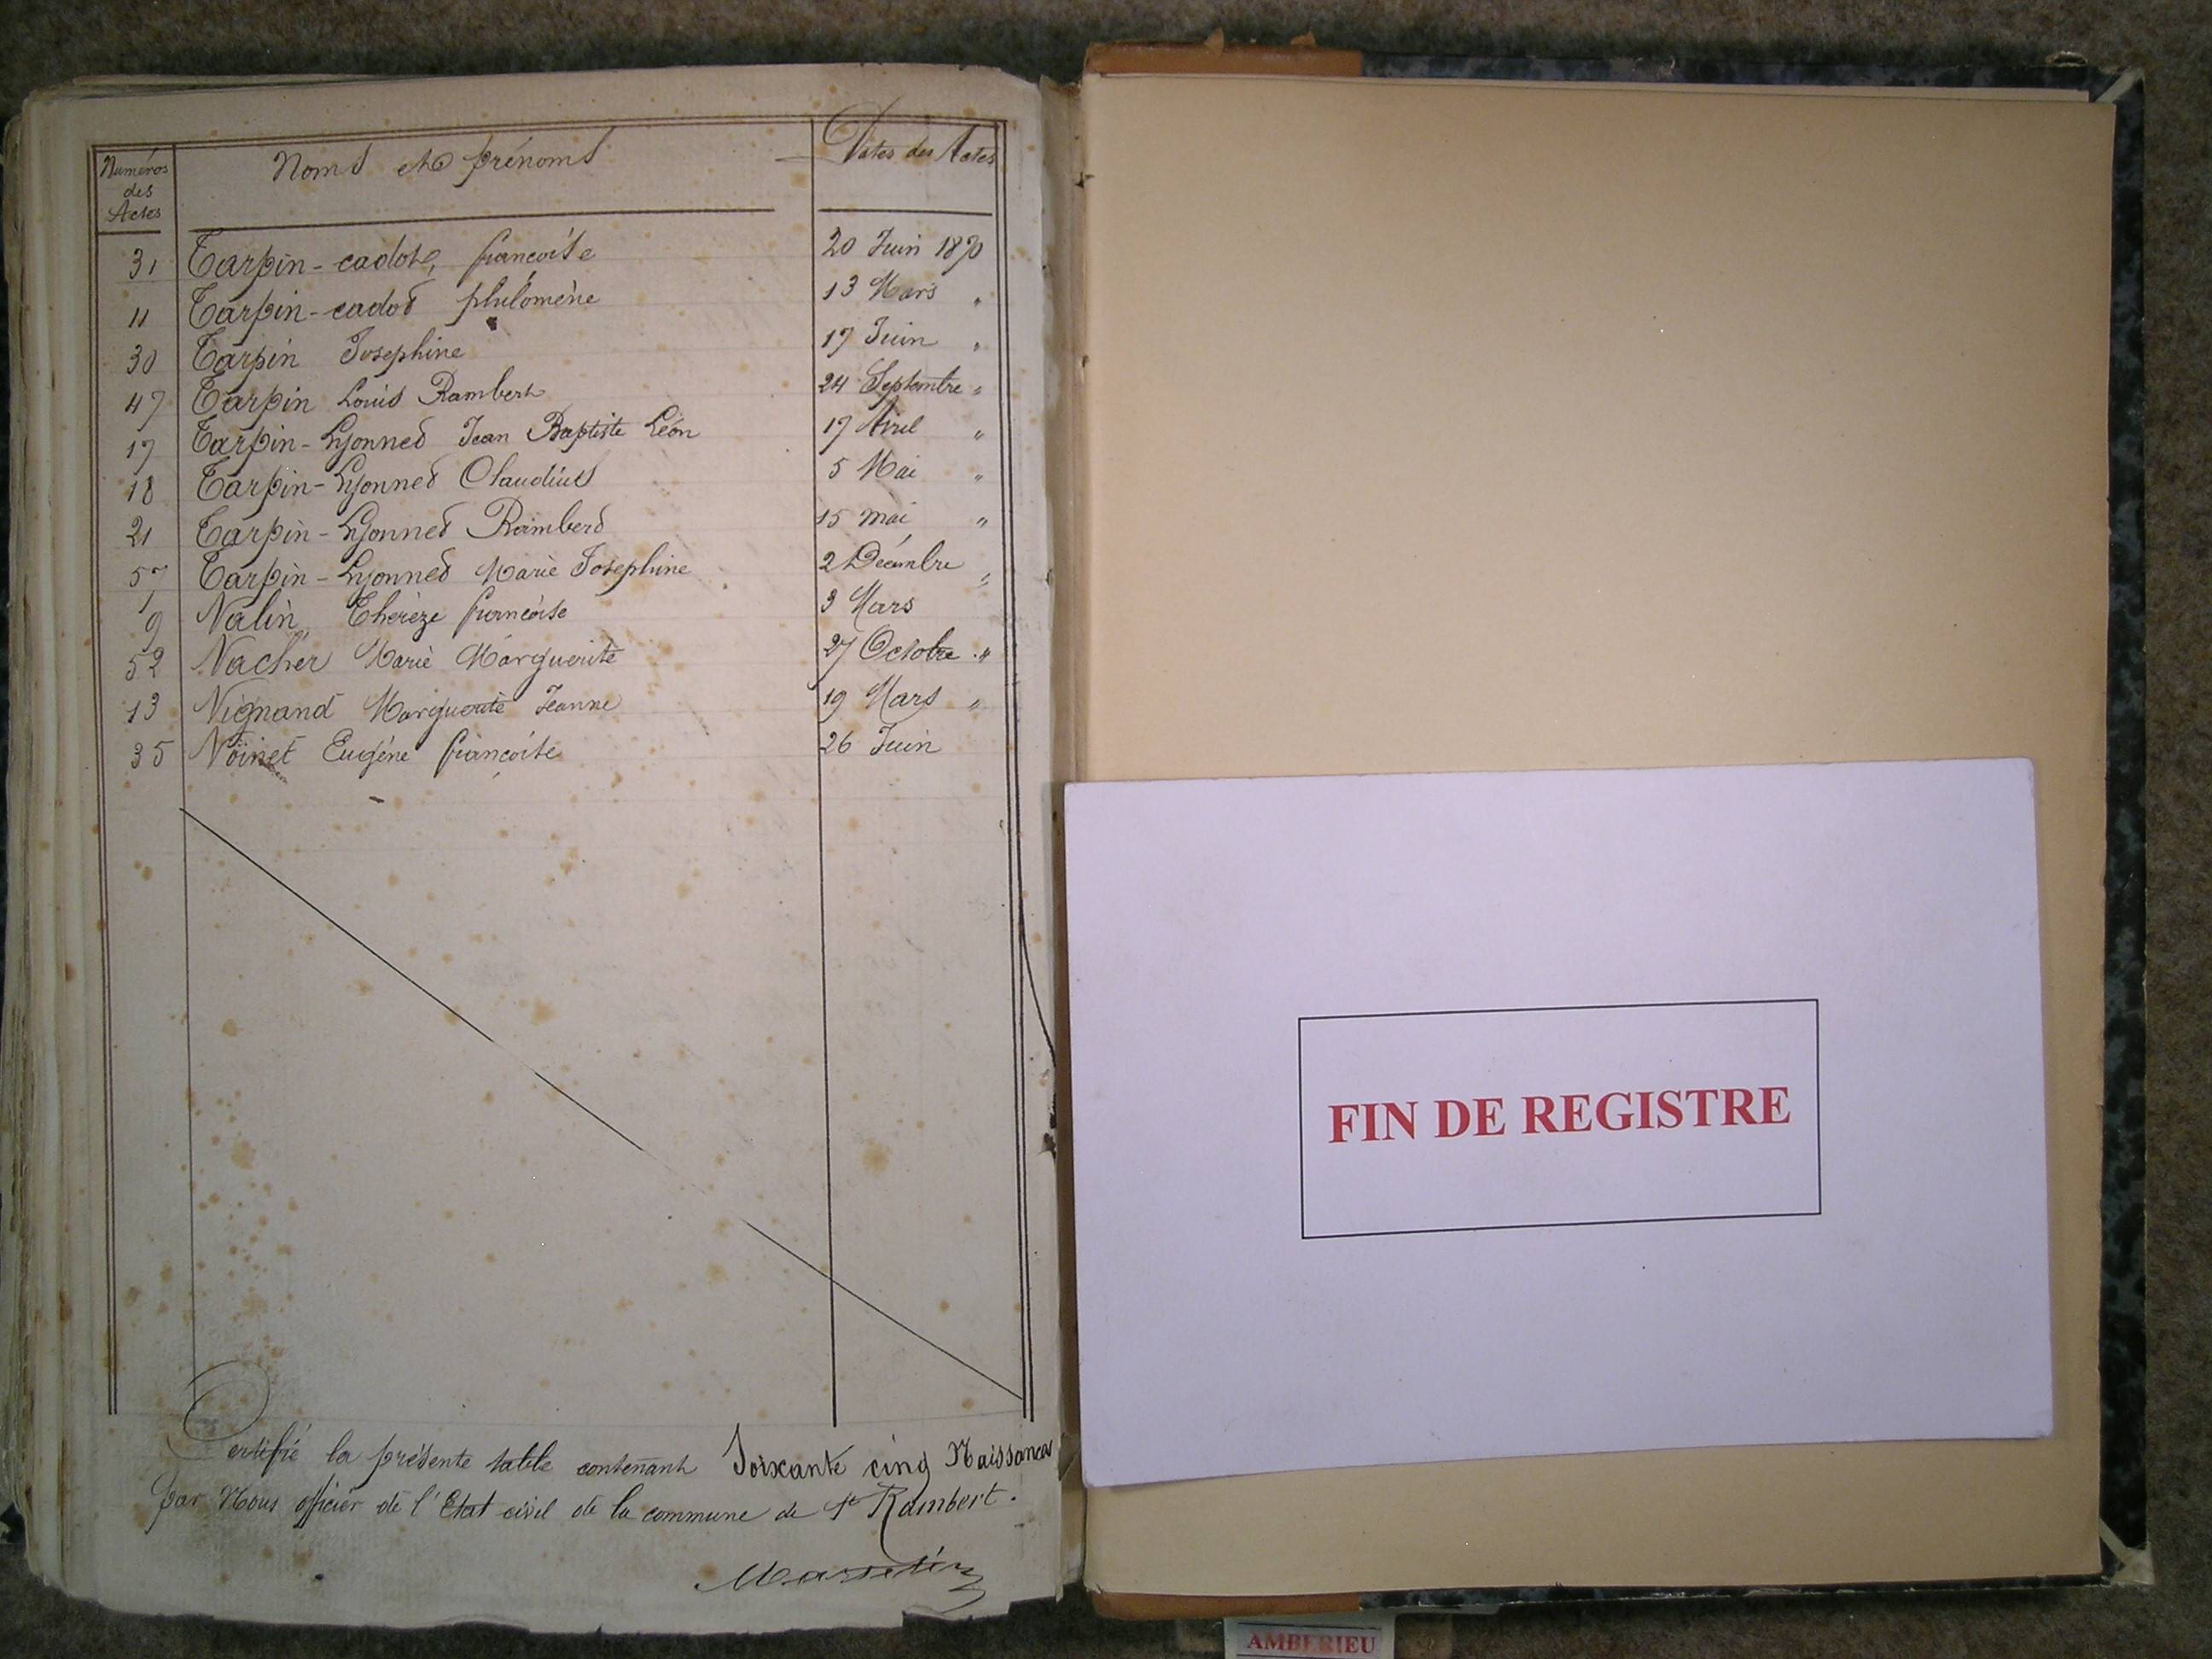 Numéros des Actes Noms et prénoms Dates des Actes
31 Tarpin-cadot, françoise 20 Juin 1870
11 Tarpin-cadot philomène 13 Mars "
30 Tarpin Josephine 17 Juin "
47 Tarpin Louis Rambert 24 Septembre "
17 Tarpin-Lyonnet Jean Baptiste Léon 17 Avril "
18 Tarpin-Lyonnet Claudius 5 Mai "
21 Tarpin-Lyonnet Rambert 15 mai "
57 Tarpin-Lyonnet Marie Josephine 2 Décembre "
9 Valin Thérèze françoise 3 Mars
52 Vacher Marie Marguerite 27 Octobre "
13 Vignand Marguerite Jeanne 19 Mars "
35 Voinet Eugéne françoise 26 Juin
Certifié la présente table contenant Soixante cinq Naissances
par Nous officier de l'Etat civil de la commune de St Rambert.
FIN DE REGISTRE
AMBERIEU